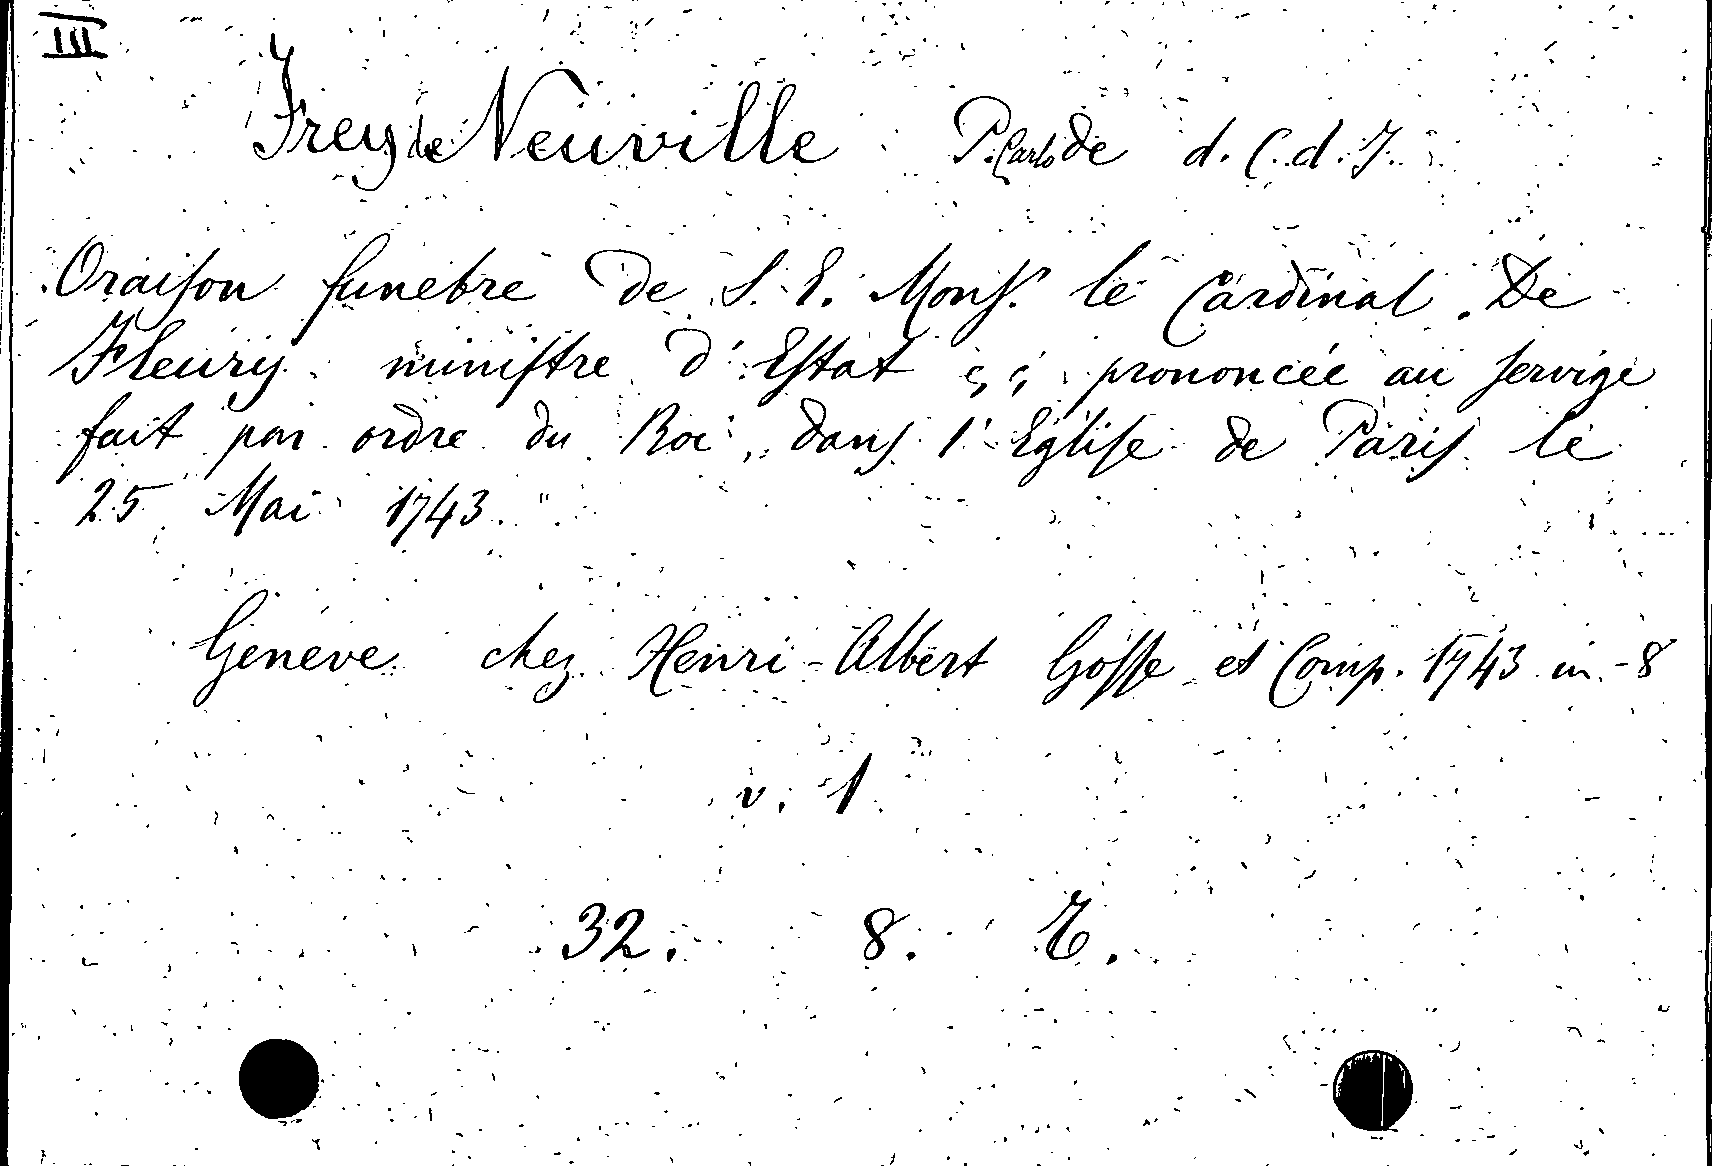 III
Frey de Neuville P. Carlo de d. C. d. J.
Oraison funebre de S. E. Mons. le Cardinal De
Fleury ministre d'Estat &c &c prononcée au servige
fait par ordre du Roi, dans l'Eglise de Paris le
25 Mai 1743."
Geneve chez Henri-Albert Gosse et Comp. 1743 in-8
v. 1
32. 8. E.